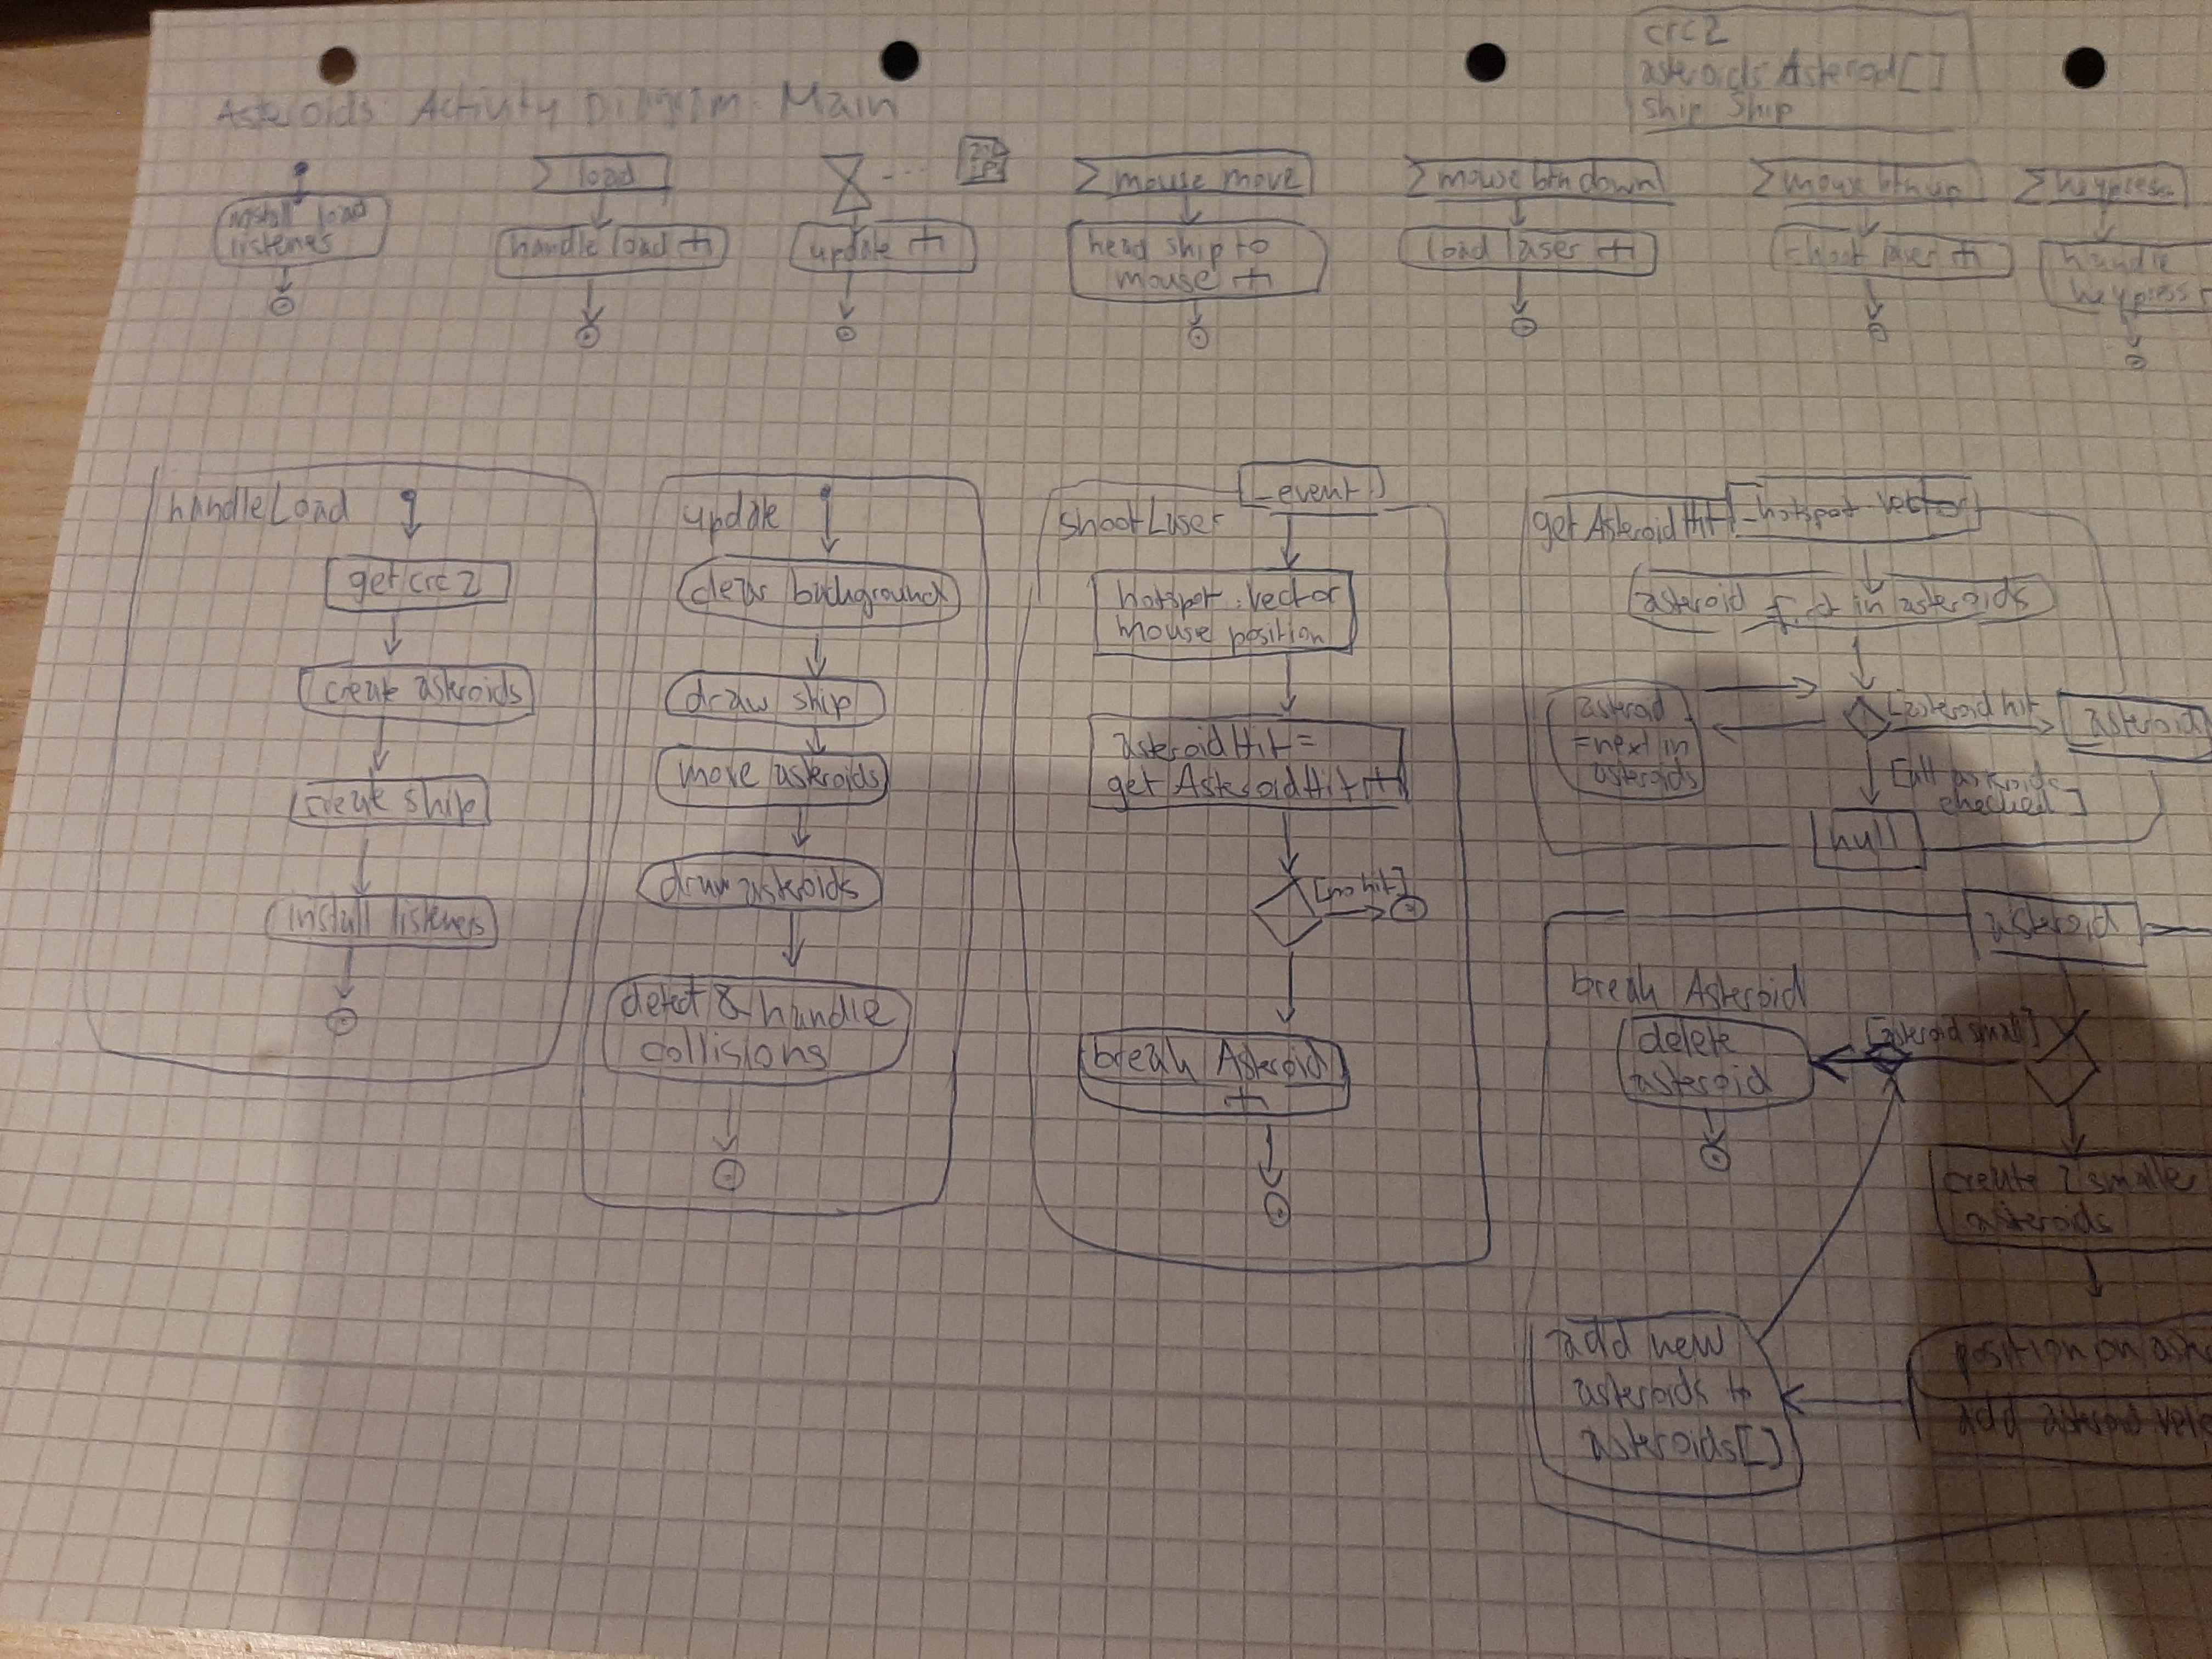 crc2
asteroids Asteroid[]
ship Ship
Asteroids: Activity Diagram: Main
install load
listeners
load
handle load
update
mouse move
head ship to
mouse
mouse btn down
load laser
mouse btn up
shoot laser
keypress
handle
keypress
handleLoad
get crc2
create asteroids
create ship
install listeners
update
clear background
draw ship
move asteroids
draw asteroids
detect & handle
collisions
shootLaser
_event
hotspot: vector
mouse position
asteroidHit =
getAsteroidHit
[no hit]
break Asteroid
getAsteroidHit
_hotspot vector
asteroid in asteroids
asteroid
=next in
asteroids
[asteroid hit
asteroid
[all asteroids
checked]
null
asteroid
break Asteroid
[asteroid small]
delete
asteroid
create 2 smaller
asteroids
position on
add asteroid
add new
asteroids to
asteroids[]